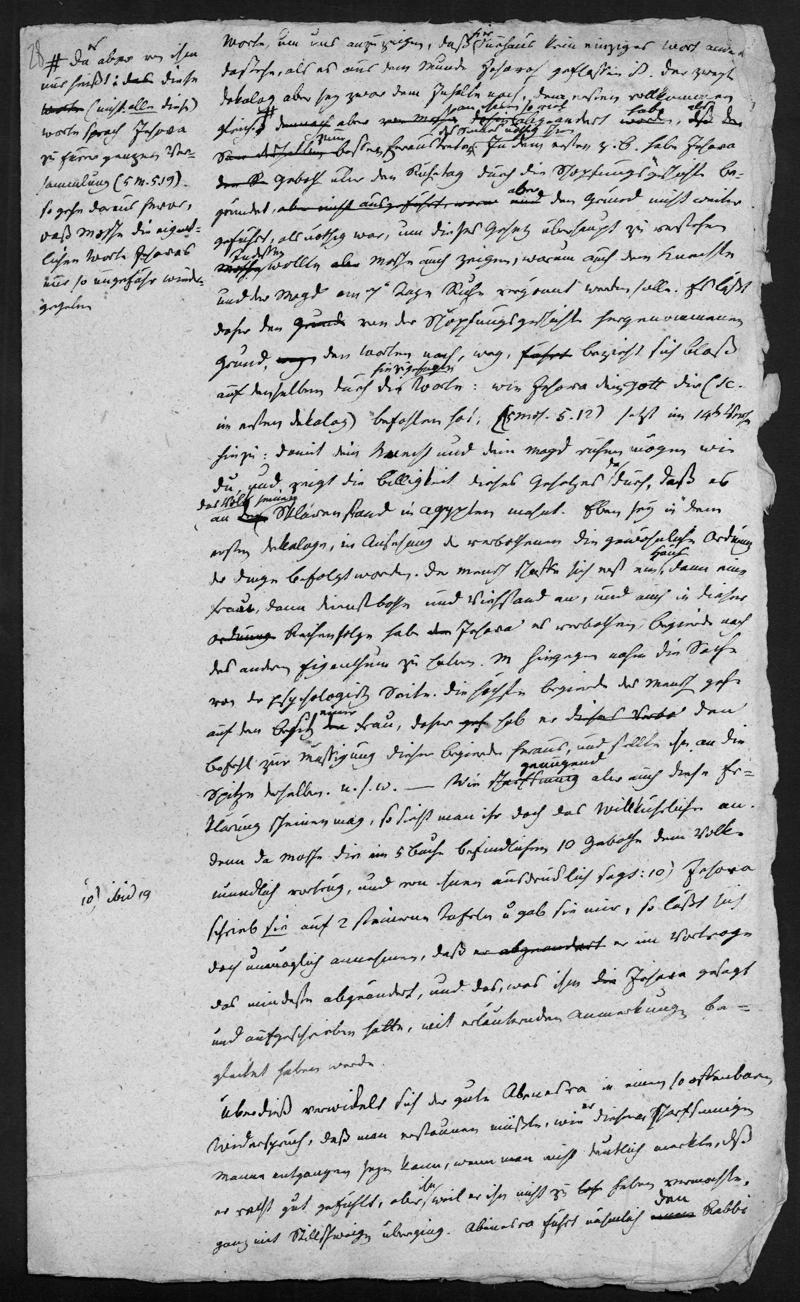 28
# Da er aber von ihm
nur heißt: das diese
worte (nicht alle diese)
worte sprach Jehova
zu eurer ganzen Ver-
sammlung (5 M. 5.19).
so gehe daraus hervor,
daß Mosche die eigent-
lichen Worte Jehovas
nur so ungefähr wieder-
gegeben
10) ibid 19
Worte, um uns anzuzeigen, daß hier durchaus kein einziges Wort anders
dastehe, als es aus dem Munde Jehovas geflossen ist. Der zweyte
Dekalog aber sey zwar dem Inhalte nach, dem ersten vollkommen
gleich # aber abgeändert worden,
besser herauszuheben. In dem ersten z. B. habe Jehova
das Geboth über den Ruhetag durch die Schöpfungsgeschichte be-
gründet, aber nicht ausgeführt, aber den Grund nicht weiter
geführt, als nöthig war, um dieses Gesetz überhaupt zu verstehen
Indessen wollte aber Mosche auch zeigen, warum auch dem Knechte
und der Magd am 7t Tage Ruhe gegönnt werden solle. Er läßt
daher den Grund von der Schöpfungsgeschichte hergenommenen
Grund, den Worten nach, weg, führt bezieht sich bloß
auf denselben durch die hinzugefügten Worte: wie Jehova dein Gott dir (sc.
im ersten Dekalog) befohlen hat, (5 Mos. 5.12) setzt im 14t Verse
hinzu: damit dein Knecht und deine Magd ruhen mögen wie
du, und zeigt die Billigkeit dieses Gesetzes dadurch, daß er
das Volk an seinen Sklavenstand in Aegypten mahnt. Eben sey in dem
ersten Dekaloge, in Ansehung des verbothenen die gewöhnliche Ordnung
der Dinge befolgt worden. Der Mensch schaffe sich erst ein Haus, dann eine
Frau, dann Dienstbothe und Viehstand an, und auch in dieser
Ordnung Reihenfolge habe Jehova es verbothen, Begierde nach
des andern Eigenthum zu haben. M. hingegen nahm die Sache
von der psychologisch Seite. Die höchste Begierde des Mensch gehe
auf den Besitz einer Frau, daher hob er dieses Verbo den
Befehl zur Mässigung dieser Begierde heraus, und stellte ihn an die
Spitze derselben. u. s. w. — Wie genügend aber auch diese Er-
klärung scheinen mag, so sieht man ihr doch das Willkührliche an.
denn da Mosche die im 5 Buche befindlichen 10 Gebothe dem Volke
mündlich vortrug, und von ihnen ausdrücklich sagt: 10) Jehova
schrieb sie auf 2 steinerne Tafeln u gab sie mir, so läßt sich
doch unmöglich annehmen, daß er abgeändert er im Vortrage
das mindeste abgeändert, und das, was ihm Jehova gesagt
und aufgeschrieben hatte, mit erläuternden Anmerkungen be-
gleitet haben werde.
Überdieß verwickelt sich der gute Abenesra in einen so offenbaren
Widerspruch, daß man erstaunen müßte, wie er diesem scharfsinnigen
Manne entgangen seyn kann, wenn man nicht deutlich merkte, daß
er recht gut gefühlt, aber weil er ihn nicht zu heben vermochte,
ganz mit Stillschweigen überging. Abenesra führt nähmlich den Rabbi